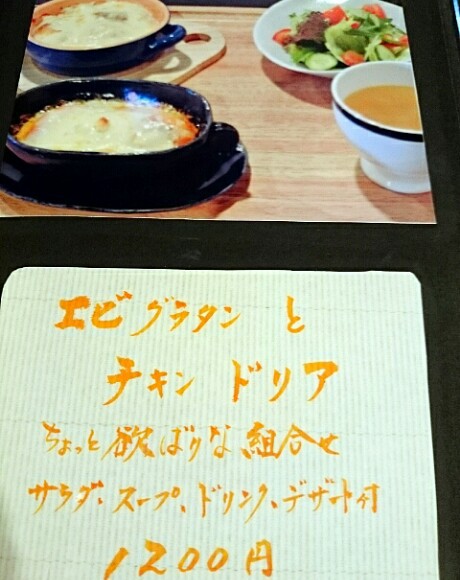 エビグラタンと
チキンドリア
ちょっと欲ばりな組合せ
サラダ、スープ、ドリンク、デザート付
1200円